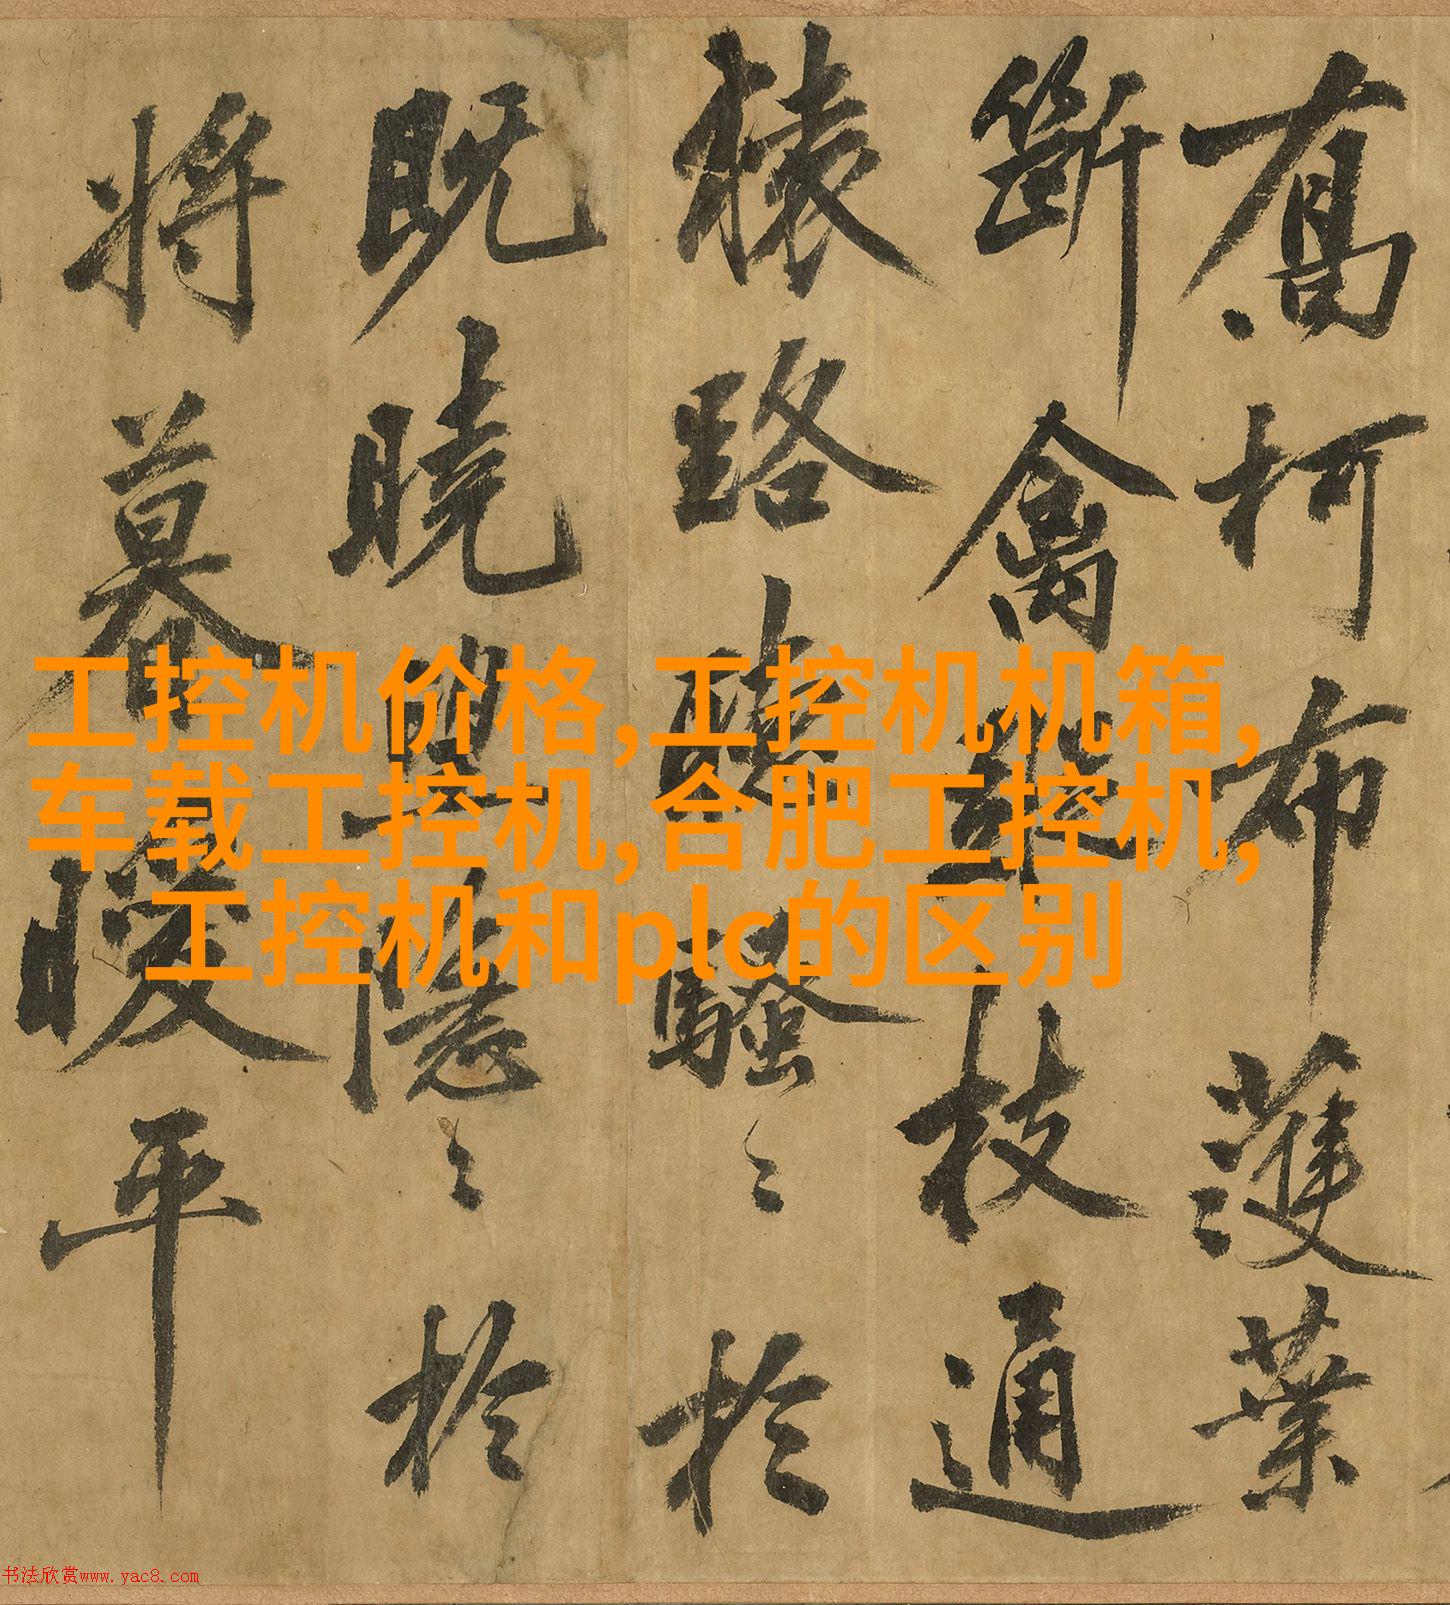 喬柯布濩葉
斷禽蹤枝通
猿路聽騷〻於
既曉望隱〻於
將暮暖平
工控机价格,工控机机箱,
车载工控机,合肥工控机,
工控机和plc的区别
书法欣赏www.yac8.com